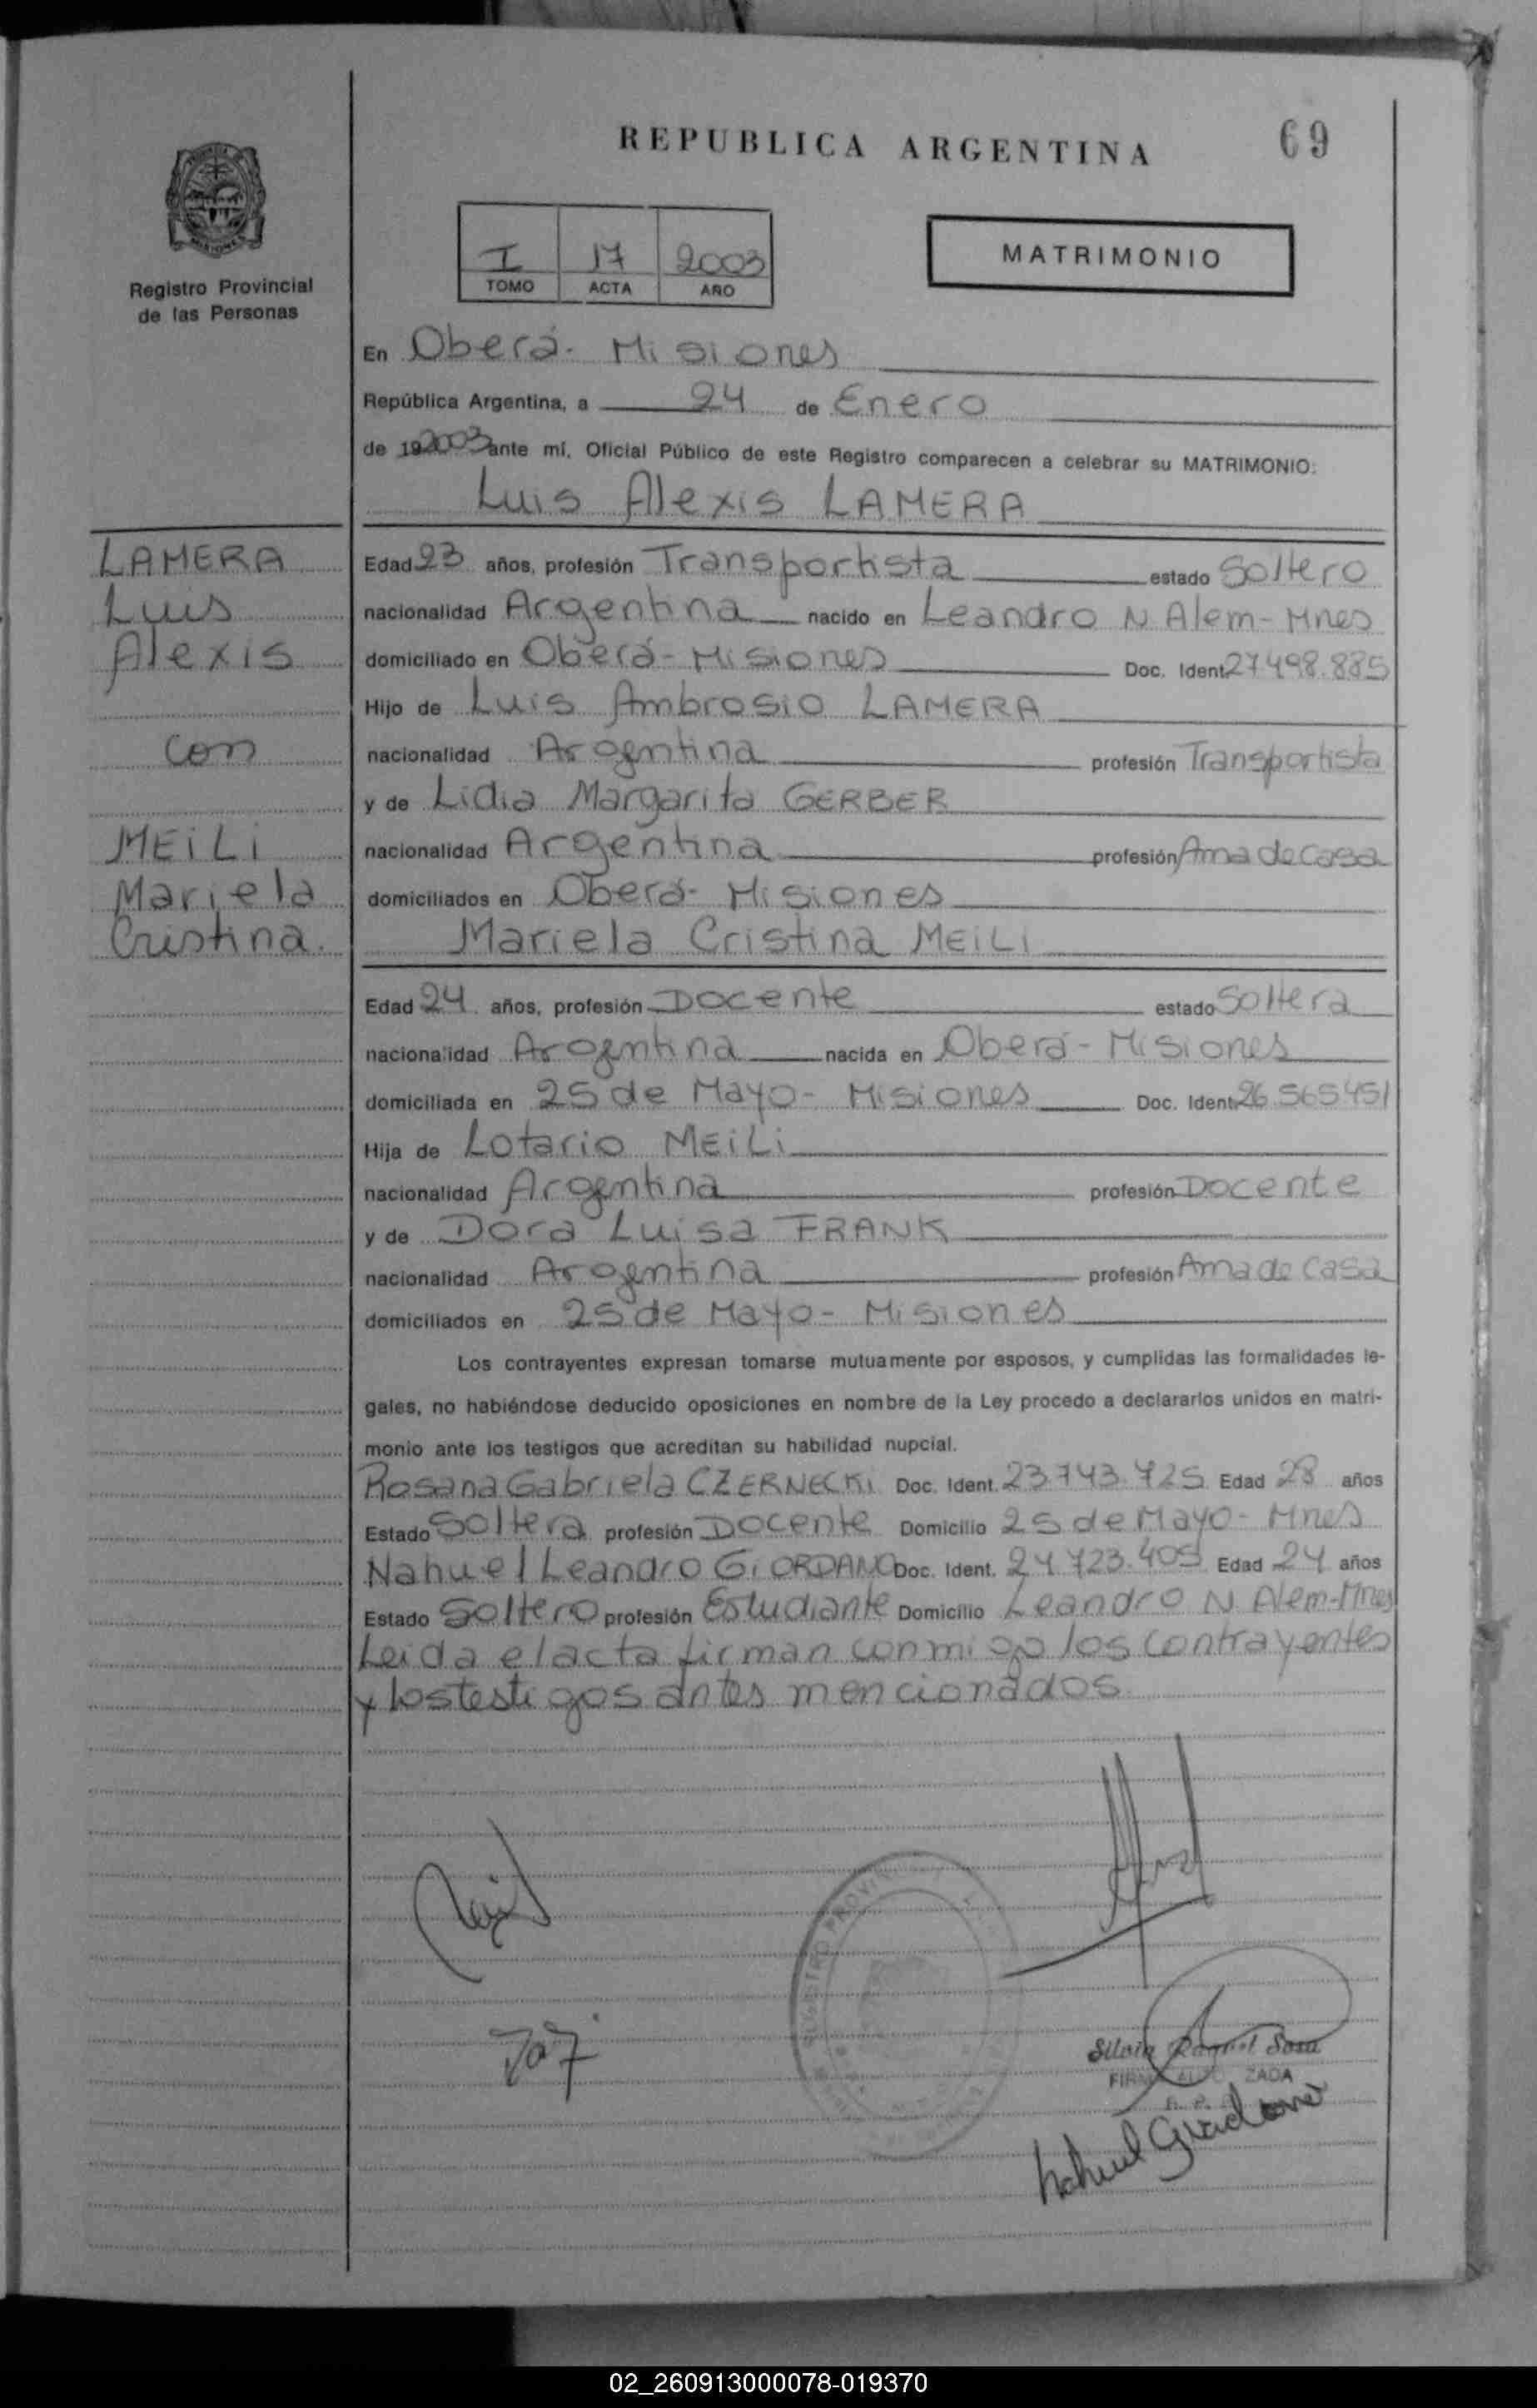 REPUBLICA ARGENTINA
69
I 17 2003
TOMO ACTA AÑO
MATRIMONIO
Registro Provincial
de las Personas
En Oberá - Misiones
República Argentina, a 24 de Enero
de 192003 ante mí, Oficial Público de este Registro comparecen a celebrar su MATRIMONIO:
Luis Alexis LAMERA
LAMERA
Luis
Alexis
con
MEiLi
Mariela
Cristina.
Edad 23 años, profesión Transportista estado Soltero
nacionalidad Argentina nacido en Leandro N Alem - Mnes
domiciliado en Oberá - Misiones Doc. Ident. 27498.885
Hijo de Luis Ambrosio LAMERA
nacionalidad Argentina profesión Transportista
y de Lidia Margarita GERBER
nacionalidad Argentina profesión Ama de Casa
domiciliados en Oberá - Misiones
Mariela Cristina MEiLi
Edad 24 años, profesión Docente estado Soltera
nacionalidad Argentina nacida en Oberá - Misiones
domiciliada en 25 de Mayo - Misiones Doc. Ident. 26 565451
Hija de Lotario MEiLi
nacionalidad Argentina profesión Docente
y de Dora Luisa FRANK
nacionalidad Argentina profesión Ama de Casa
domiciliados en 25 de Mayo - Misiones
Los contrayentes expresan tomarse mutuamente por esposos, y cumplidas las formalidades le-
gales, no habiéndose deducido oposiciones en nombre de la Ley procedo a declararlos unidos en matri-
monio ante los testigos que acreditan su habilidad nupcial.
Rosana Gabriela CZERNECKi Doc. Ident. 23.743.725 Edad 28 años
Estado Soltera profesión Docente Domicilio 25 de Mayo - Mnes
Nahuel Leandro GiORDANO Doc. Ident. 24 723.405 Edad 24 años
Estado Soltero profesión Estudiante Domicilio Leandro N Alem - Mnes
Leida el acta firman conmigo los contrayentes
y los testigos antes mencionados.
Silvia Raquel Sosa
02_260913000078-019370